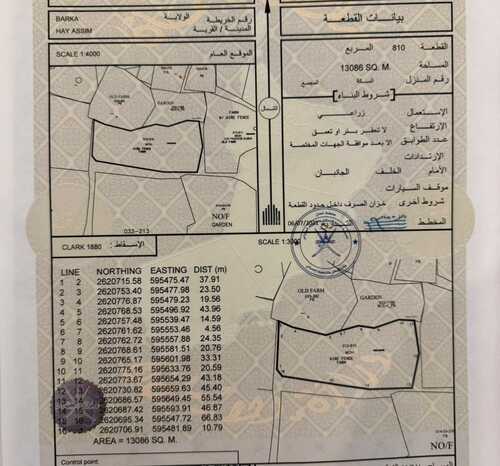 BARKA
الولاية
HAY ASSIM
رقم الخريطة
المدينة / القرية
SCALE 1:4000
الموقع العام
OLD FARM
GARDEN
FARM
W/ WIRE FENCE
OLD FARM
033-213
NO/F
GARDEN
بيانات القطعة
القطعة 810 المربع
المساحة 13086 SQ. M.
رقم المنزل السكة المجمع
شروط البناء
الإستعمال زراعي
الإرتفاع لا تحفر بئر أو تعمق
عدد الطوابق الا بعد موافقة الجهات المختصة
الإرتدادات
الأمام الخلف الجانبان
موقف السيارات
شروط أخرى خزان الصرف داخل حدود القطعة
المخطط
شمال
CLARK 1880 الإسقاط:
SCALE 1:3000
LINE NORTHING EASTING DIST (m)
1 2 2620715.58 595475.47 37.91
2 3 2620753.40 595477.98 23.50
3 4 2620776.87 595479.23 19.56
4 5 2620768.53 595496.92 43.96
5 6 2620757.48 595539.47 14.59
6 7 2620761.62 595553.46 4.56
7 8 2620762.72 595557.88 24.35
8 9 2620768.61 595581.51 20.76
9 10 2620765.17 595601.98 33.31
10 11 2620775.16 595633.76 20.59
11 12 2620773.67 595654.29 43.18
12 13 2620730.82 595659.63 45.40
13 14 2620686.57 595649.45 55.54
14 15 2620687.42 595593.91 46.87
15 16 2620695.34 595547.72 66.83
16 2620706.91 595481.89 10.79
AREA = 13086 SQ. M.
OLD FARM
GARDEN
WIRE FENCE
FARM
NO/F
Control point